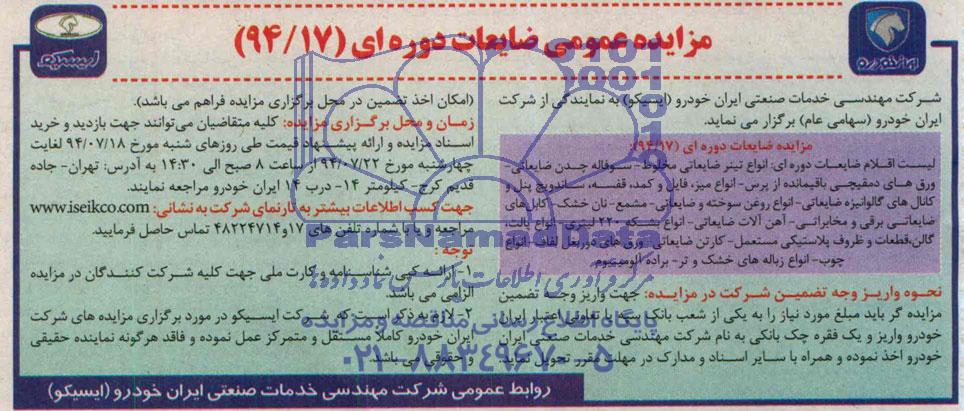 مزایده عمومی ضایعات دوره ای (۹۴/۱۷)
ایران خودرو
ایسیکو
شرکت مهندسی خدمات صنعتی ایران خودرو (ایسیکو) به نمایندگی از شرکت
ایران خودرو (سهامی عام) برگزار می نماید.
مزایده ضایعات دوره ای (۹۴/۱۷):
لیست اقلام ضایعات دوره ای: انواع تینر ضایعاتی مخلوط- سوفاله چدن ضایعاتی-
ورق های دمقیچی باقیمانده از پرس- انواع میز، فایل و کمد، قفسه، ساندویچ پنل و
کانال های گالوانیزه ضایعاتی- انواع روغن سوخته و ضایعاتی- مشمع- نان خشک- کابل‌های
ضایعاتی برقی و مخابراتی- آهن آلات ضایعاتی- انواع بشکه ۲۲۰ لیتری- انواع پالت،
گالن، قطعات و ظروف پلاستیکی مستعمل- کارتن ضایعاتی- ورق های دوربغل لفاف- انواع
چوب- انواع زباله های خشک و تر- براده آلومینیوم.
نحوه واریز وجه تضمین شرکت در مزایده: جهت واریز وجه تضمین
مزایده گر باید مبلغ مورد نیاز را به یکی از شعب بانک سپه یا تعاونی اعتبار ایران
خودرو واریز و یک فقره چک بانکی به نام شرکت مهندسی خدمات صنعتی ایران
خودرو اخذ نموده و همراه با سایر اسناد و مدارک در مهلت مقرر تحویل نماید.
(امکان اخذ تضمین در محل برگزاری مزایده فراهم می باشد).
زمان و محل برگزاری مزایده: کلیه متقاضیان می‌توانند جهت بازدید و خرید
اسناد مزایده و ارائه پیشنهاد قیمت طی روزهای شنبه مورخ ۹۴/۰۷/۱۸ لغایت
چهارشنبه مورخ ۹۴/۰۷/۲۲ از ساعت ۸ صبح الی ۱۴:۳۰ به آدرس: تهران- جاده
قدیم کرج- کیلومتر ۱۴- درب ۱۴ ایران خودرو مراجعه نمایند.
جهت کسب اطلاعات بیشتر به تارنمای شرکت به نشانی: www.iseikco.com
مراجعه و یا با شماره تلفن های ۱۷و۴۸۲۲۴۷۱۴ تماس حاصل فرمایید.
توجه:
۱- ارائه کپی شناسنامه و کارت ملی جهت کلیه شرکت کنندگان در مزایده
الزامی می باشد.
۲- لازم به ذکر است که شرکت ایسیکو در مورد برگزاری مزایده های شرکت
ایران خودرو کاملا مستقل و متمرکز عمل نموده و فاقد هرگونه نماینده حقیقی
و حقوقی می باشد.
روابط عمومی شرکت مهندسی خدمات صنعتی ایران خودرو (ایسیکو)
ParsNamadData
مرکز فرآوری اطلاعات پارس نماد داده ها
پایگاه اطلاع رسانی مناقصه و مزایده
۰۲۱-۸۸۳۴۹۶۷۰-۵